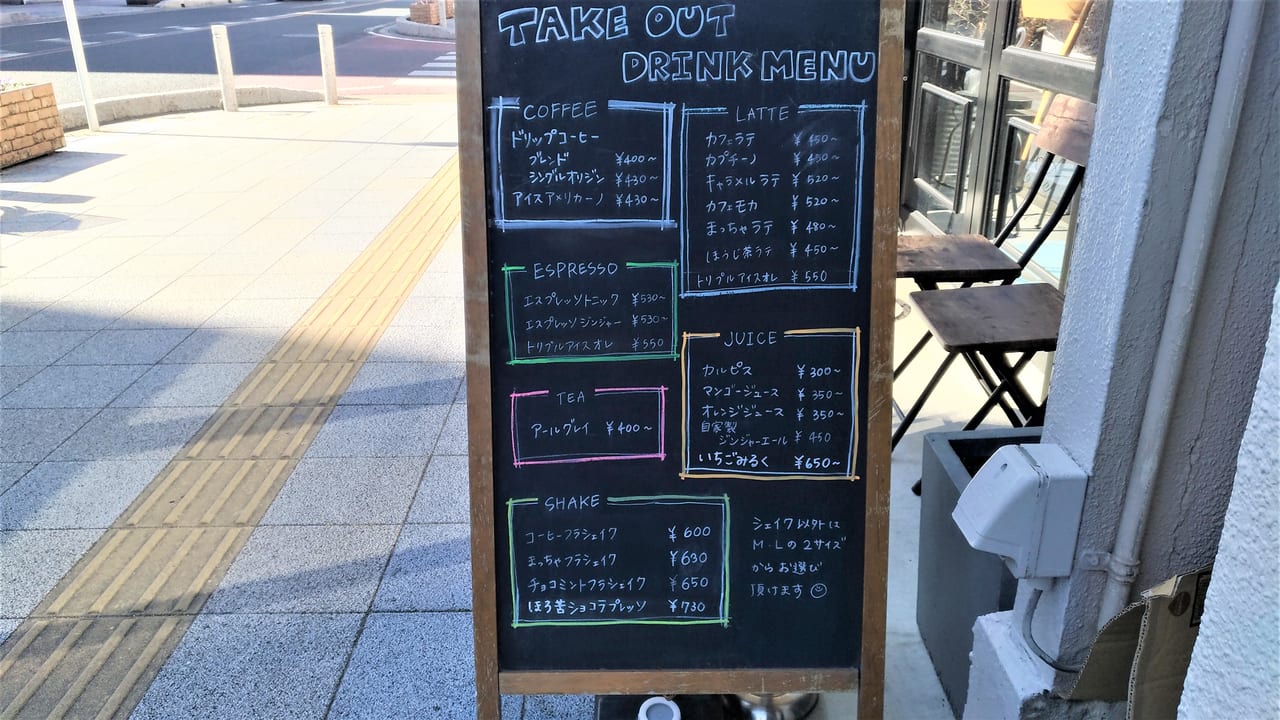 TAKE OUT
DRINK MENU
COFFEE
ドリップコーヒー
ブレンド ¥400～
シングルオリジン ¥430～
アイスアメリカーノ ¥430～
ESPRESSO
エスプレッソトニック ¥530～
エスプレッソジンジャー ¥530～
トリプルアイスオレ ¥550
TEA
アールグレイ ¥400～
SHAKE
コーヒーフラシェイク ¥600
まっちゃフラシェイク ¥630
チョコミントフラシェイク ¥650
ほろ苦ショコラプレッソ ¥730
LATTE
カフェラテ ¥450～
カプチーノ ¥450～
キャラメルラテ ¥520～
カフェモカ ¥520～
まっちゃラテ ¥480～
ほうじ茶ラテ ¥450～
トリプルアイスオレ ¥550
JUICE
カルピス ¥300～
マンゴージュース ¥350～
オレンジジュース ¥350～
自家製
ジンジャーエール ¥450
いちごみるく ¥650～
シェイク以外は
M・Lの2サイズ
からお選び
頂けます